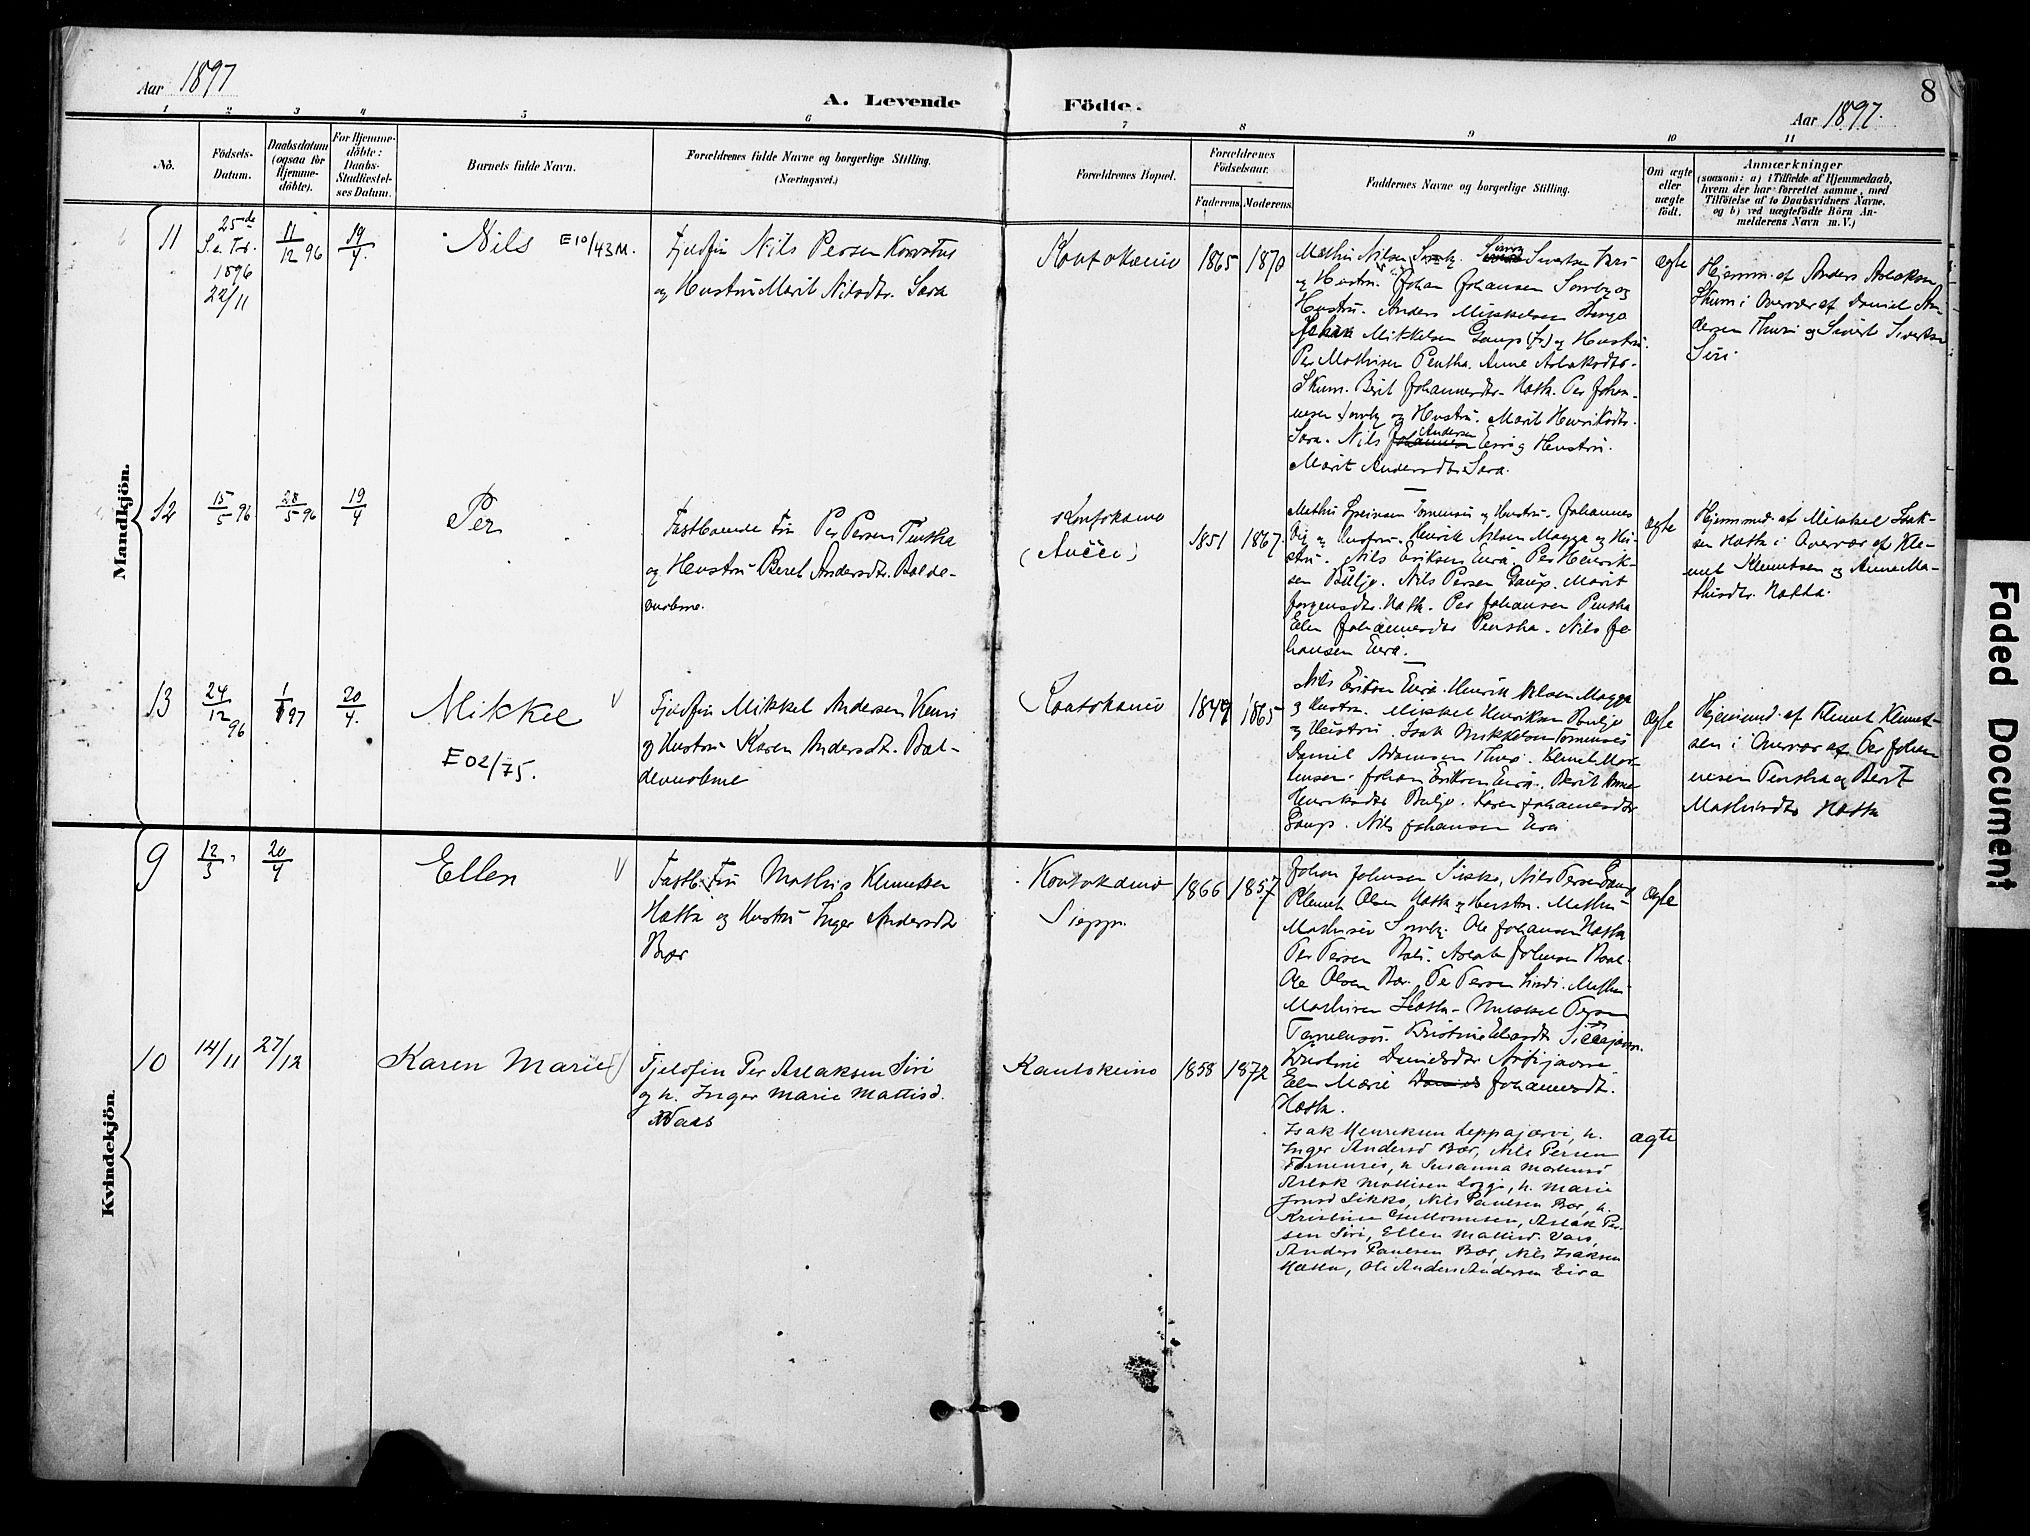 Aar 1897
A. Levende Födte.
8
Aar 1897.
1 2 3 4 5 6 7 8 9 10 11
No.
Födsels-
Datum.
Daabsdatum
(ogsaa for
Hjemme-
döbte).
For Hjemme-
döbte:
Daabs-
Stadfæstel-
ses Datum.
Barnets fulde Navn.
Forældrenes fulde Navne og borgerlige Stilling.
(Næringsvei.)
Forældrenes Bopæl.
Forældrenes
Födselsaar.
Faderens Moderens
Faddernes Navne og borgerlige Stilling.
Om ægte
eller
uægte
födt.
Anmærkninger
(saasom: a) i Tilfælde af Hjemmedaab,
hvem der har forrettet samme, med
Tilföielse af to Daabsvidners Navne.
og b) ved uægtefödte Börn An-
melderens Navn m. V.)
Mandkjön.
11
25de
S. e. Tr.
1896
22/11
11/12 96
19/4
Nils E10/43M.
Fjeldfin Nils Persen
og Hustru Marit Nilsdtr. Sara
Kautokeino
1865 1870
Mathis Nilsen Somby. Sivertsen
og Hustru. Johan Johansen Somby og
Hustru. Anders Mikkelsen
Mikkelsen Gaup og Hustru.
Per Mathisen Pentha. Anne Aslaksdtr.
Skum. Berit Johannesdtr. Hætta. Per Johan-
nesen Somby og Hustru. Marit Henriksdtr.
Sara. Nils Andersen Eira og Hustru.
Marit Andersdtr. Sara.
ægte
Hjemmed. af Anders Aslaksen
Skum i Overvær af Daniel An-
dersen Thuri og Sivert Sivertsen
Siri.
12
15/5 96
28/5 96
19/4
Per
Fastboende Fin Per Persen Penska
og Hustru Beret Andersdtr. Balde-
vuobme.
Kautokeino
(Avčče)
1851 1867.
og Hustru. Johannes
og Hustru. Henrik Nilsen Magga og Hu-
stru. Nils Eriksen Eira. Per Henrik-
sen Buljo. Nils Persen Gaup. Marit
Jørgensdtr. Hætta. Per Johansen Penska
Elen Johannesdtr Penska. Nils Jo-
hansen Eira.
ægte
Hjemmed. af Mikkel Isak-
sen Hætta i Overvær af Kle-
met Klemetsen og Anne Ma-
thisdtr. Hætta.
13
24/12 96
1/1 97
20/4.
Mikkel
E02/75.
Fjeldfin Mikkel Andersen
og Hustru Karen Andersdt. Bal-
devuobme
Kautokeino
1849 1865
Nils Eriksen Eira. Henrik Nilsen Magga
og Hustru. Mikkel Henriksen Buljo
og Hustru. Isak Mikkelsen Tornensis
Daniel Adamsen Thuri. Klemet Mor-
tensen. Johan Eriksen Eira. Berit Anne
Henriksdtr Buljo. Karen Johannesdtr
Gaup. Nils Johansen Eira
ægte
Hjemmed. af Klemet Klemet-
sen i Overvær af Per Johan-
nesen Penska og Berit
Mathisdtr Hætta
Kvindekjön.
9
12/3
20/4
Ellen
Fastb. Fin Mathis Klemetsen
Hætta og Hustru Inger Andersdtr
Bær
Kautokeino
Siepp.
1866 1857
Johan Johnsen Sikko, Nils Persen Gaup
Klemet Olsen Hætta og Hustru. Mathis
Mathisen Somby. Ole Johansen Hætta
Per Persen Bals. Aslak Johnsen
Ole Olsen Bær. Per Persen
Mathisen Hætta. Mikkel Persen
Tornensis.
Kristine Danielsdtr
Elen Marie Johannesdt.
Hætta.
ægte
10
14/11
27/12
Karen Marie
Fjeldfin Per Aslaksen Siri
og h. Inger Marie Mattisd.
Vaas
Kautokeino
1858 1872
Isak Henriksen Leppajærvi, h.
Inger Andersd Bær, Nils Persen
Tornensis, h Susanna Mortensd
Aslak Mattisen Logje, h. Marie
Jonsd Sikko, Nils Paulsen Bær, h.
Kristine Guttormsen, Aslak Per-
sen Siri, Ellen Mattisd. Vars,
Anders Paulsen Bær, Nils Isaksen
Hætta, Ole Anders Andersen Eira
ægte
Faded Document